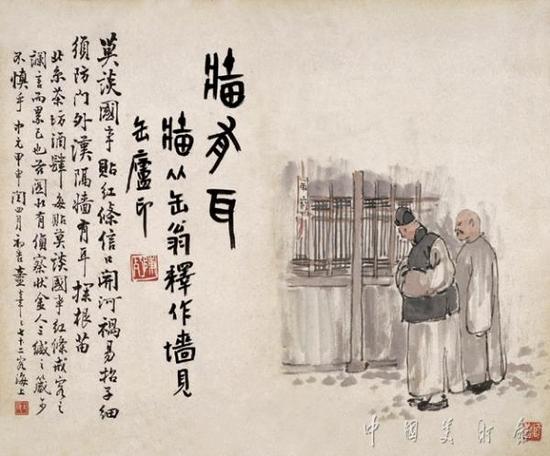 牆有耳
牆从缶翁釋作墻見
缶廬印
莫談國事貼紅條信口開河禍易招子細
須防門外漢隔牆有耳探根苗
北京茶坊酒肆每貼莫談國事紅條戒客之
讕言而累己也茲圖有偵察狀金人三緘之箴可
不慎乎 中元甲申閏四月初吉 年七十二客海上
中国美术馆